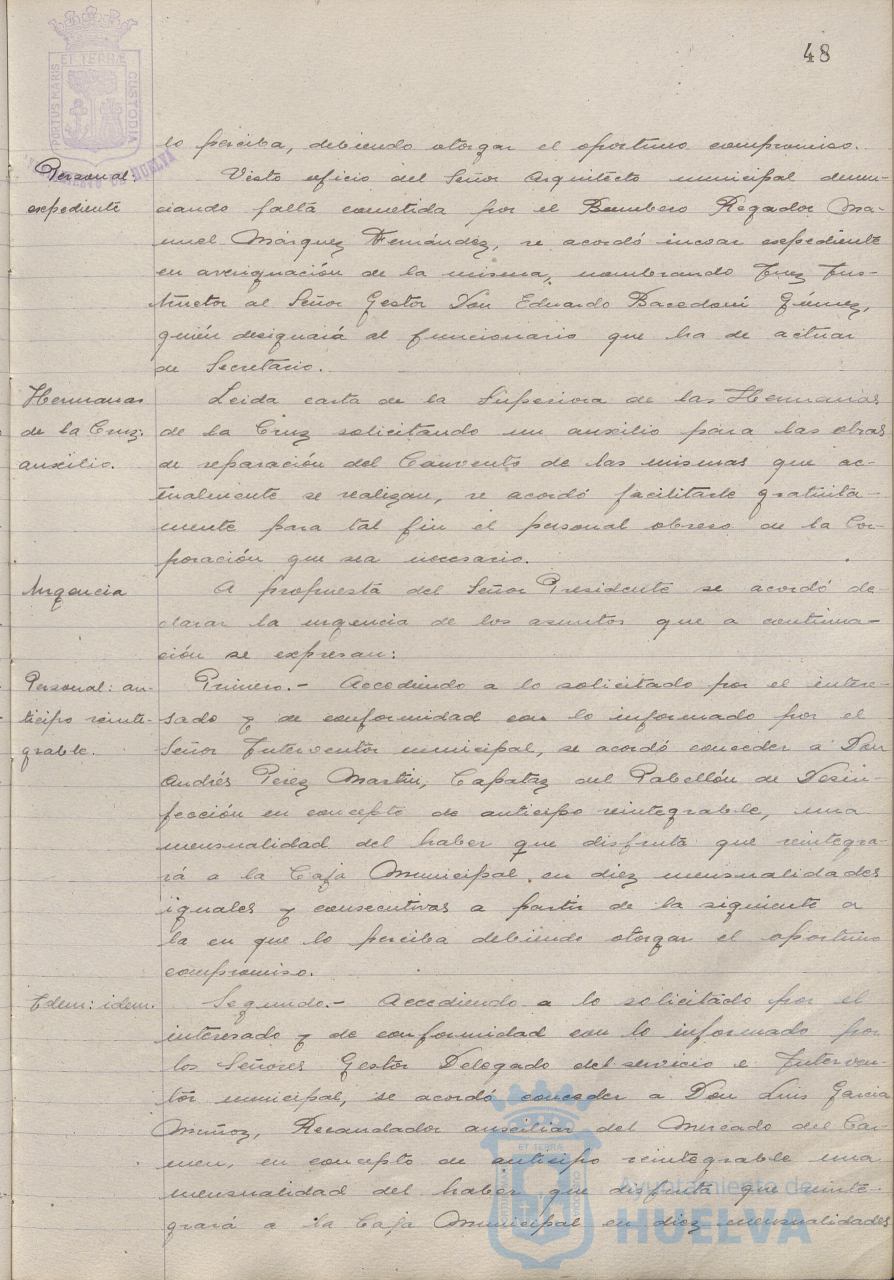 48
PORTUS MARIS ET TERRÆ CUSTODIA
HUELVA
lo perciba, debiendo otorgar el oportuno compromiso.
Personal
expediente
Visto oficio del Señor Arquitecto municipal denun-
ciando falta cometida por el Bombero Regador Ma-
nuel Márquez Fernández, se acordó incoar expediente
en averiguación de la misma, nombrando Juez Ins-
tructor al Señor Gestor Don Eduardo Gómez,
quién designará al funcionario que ha de actuar
de Secretario.
Hermanas
de la Cruz:
auxilio.
Leida carta de la Superiora de las Hermanas
de la Cruz solicitando un auxilio para las obras
de reparación del Convento de las mismas que ac-
tualmente se realizan, se acordó facilitarle gratuita-
mente para tal fin el personal obrero de la Cor-
poración que sea necesario.
Urgencia
A propuesta del Señor Presidente se acordó de-
clarar la urgencia de los asuntos que a continua-
ción se expresan:
Personal: an-
ticipo reinte-
grable.
Primero.- Accediendo a lo solicitado por el intere-
sado y de conformidad con lo informado por el
Señor Interventor municipal, se acordó conceder a Don
Andrés Perez Martin, Capataz del Pabellón de Desin-
fección en concepto de anticipo reintegrable, una
mensualidad del haber que disfruta que reintegra-
rá a la Caja Municipal en diez mensualidades
iguales y consecutivas a partir de la siguiente a
la en que lo perciba debiendo otorgar el oportuno
compromiso.
Idem: idem.
Segundo.- Accediendo a lo solicitado por el
interesado y de conformidad con lo informado por
los Señores Gestor Delegado del servicio e Interven-
tor municipal, se acordó conceder a Don Luis Garcia
Muñoz, Recaudador auxiliar del Mercado del Car-
men, en concepto de anticipo reintegrable una
mensualidad del haber que disfruta que reinte-
grará a la Caja Municipal en diez mensualidades
Ayuntamiento de
HUELVA